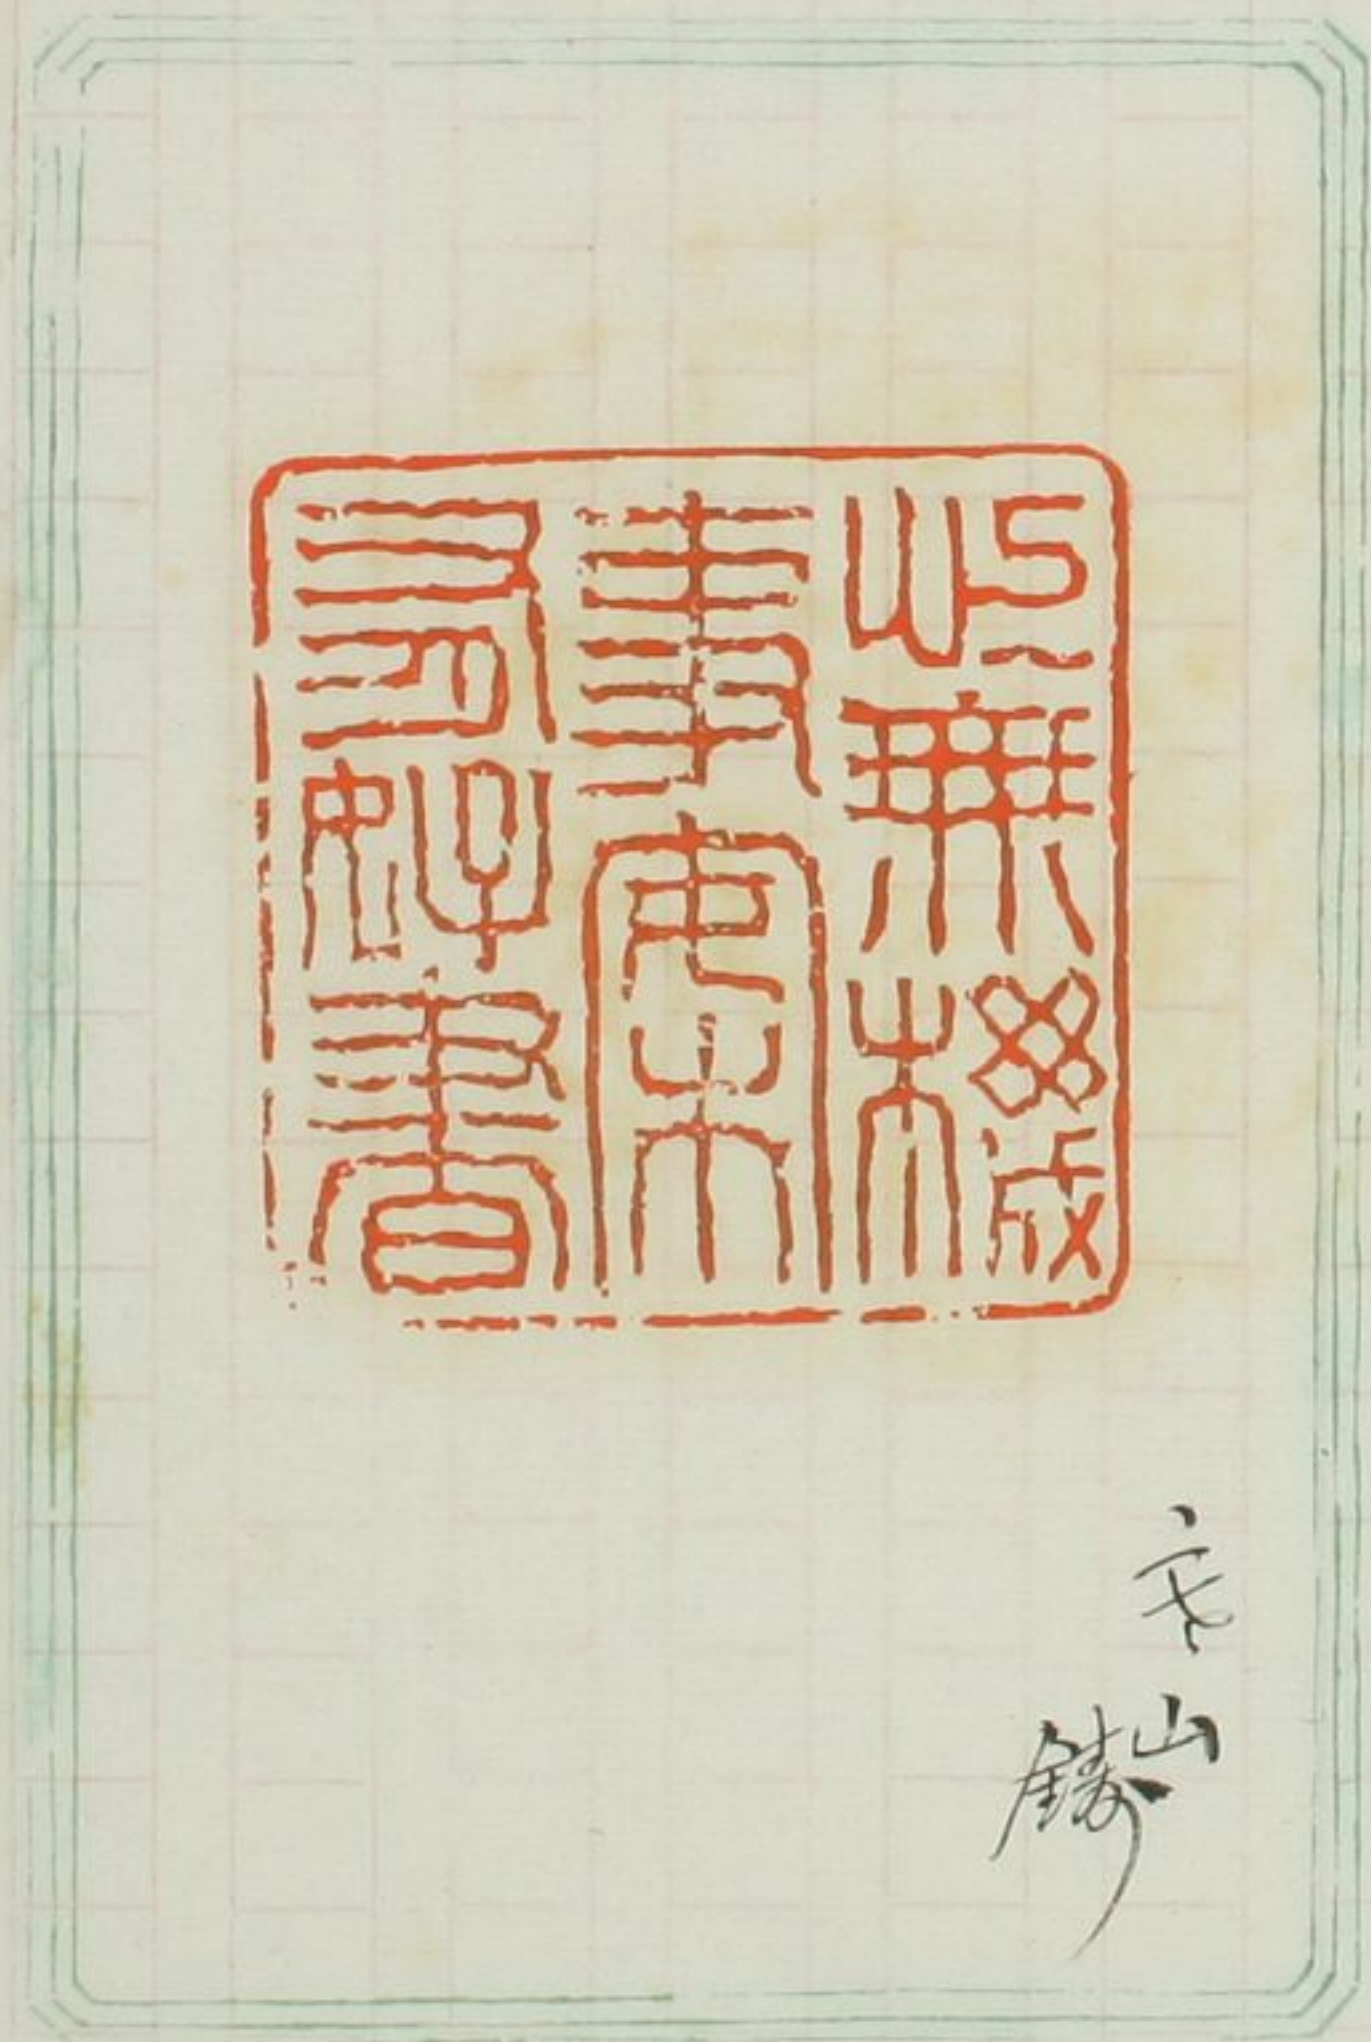 心無機
事案
有好書
山